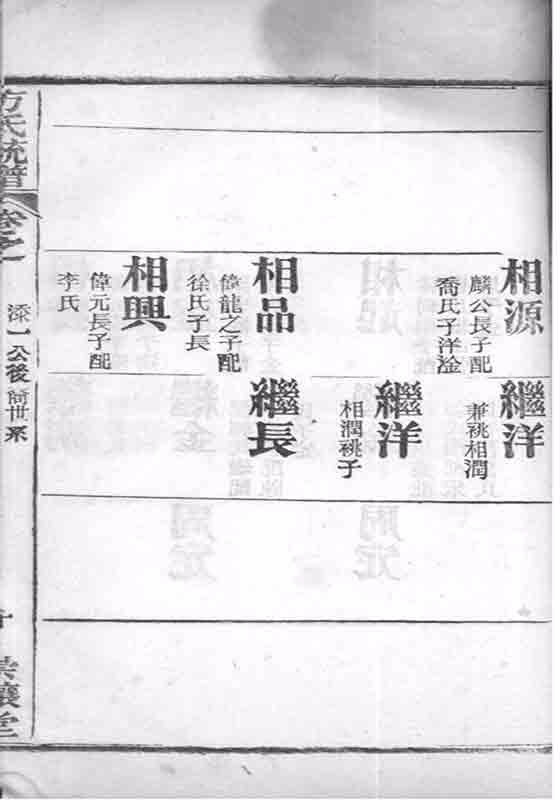 相源
麟公長子配
喬氏子洋淦
繼洋
兼祧相潤
繼洋
相潤祧子
相品
偉龍之子配
徐氏子長
繼長
相興
偉元長子配
李氏
方氏統譜
卷之一
添一公後
世系